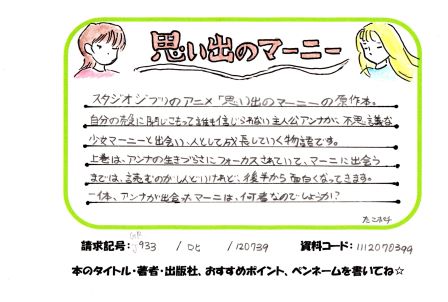 思い出のマーニー
スタジオジブリのアニメ「思い出のマーニー」の原作本。
自分の殻に閉じこもって誰も信じられない主人公アンナが、不思議な
少女マーニーと出会い、人として成長していく物語です。
上巻は、アンナの生きづらさにフォーカスされていて、マーニに出会う
までは、読むのがしんどいけれど、後半から面白くなってきます。
一体、アンナが出会ったマーニは、何者なのでしょうか?
請求記号: 933 / / 120739 資料コード: 1112070399
本のタイトル・著者・出版社、おすすめポイント、ペンネームを書いてね☆